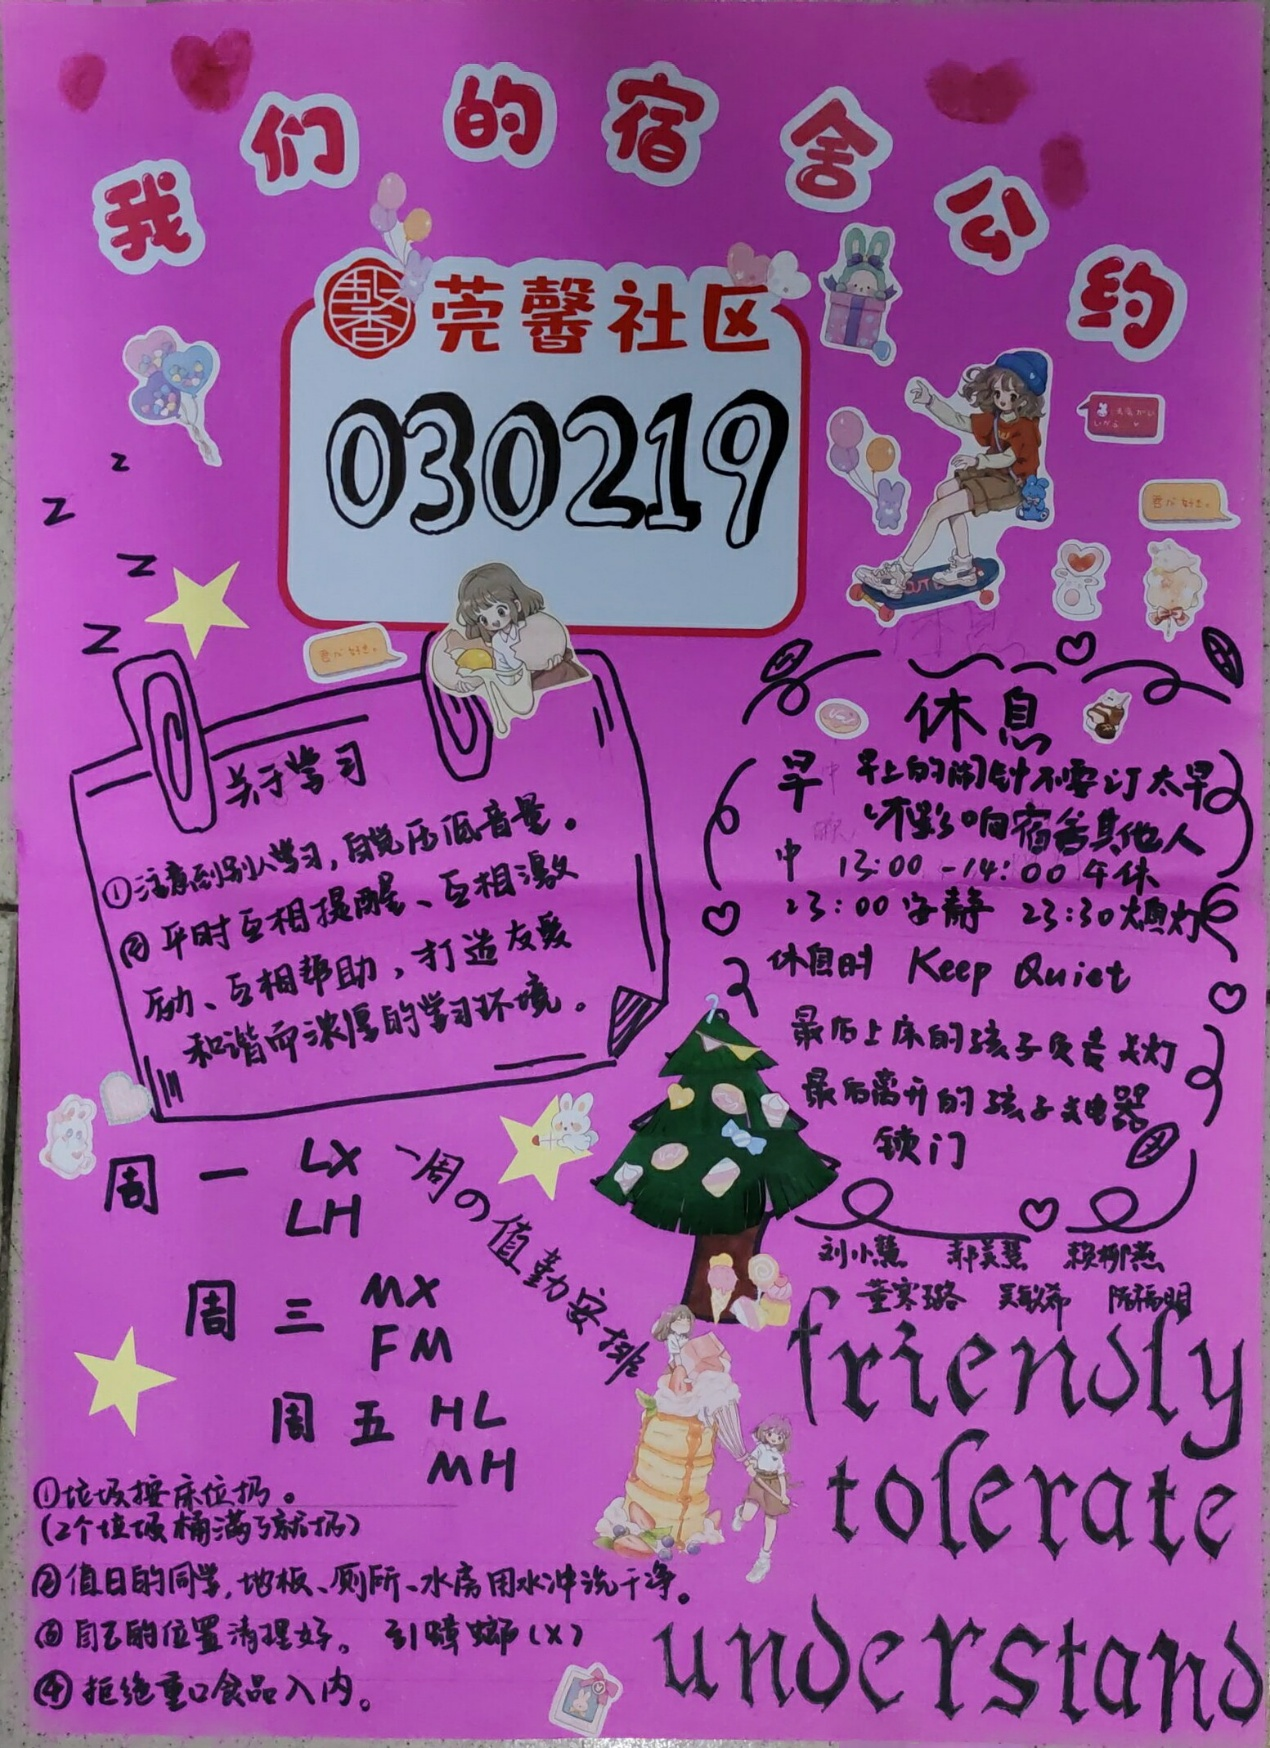 我们的宿舍公约
馨
莞馨社区
030219
z
z
z
z
君が好き。
君が好き。
关于学习
①注意到别人学习，自觉压低音量。
②平时互相提醒、互相激
励、互相帮助，打造友爱
和谐而浓厚的学习环境。
休息
早 早上的闹钟不要订太早
不影响宿舍其他人
中 13:00-14:00 午休
23:00安静 23:30大熄灯
休息时 Keep Quiet
最后上床的孩子负责关灯
最后离开的孩子关电器
锁门
刘小慧 郝美慧 赖柳燕
董寒璐 吴敏希 陈福明
一周の值勤安排
周一 LX
LH
周三 MX
FM
周五 HL
MH
①垃圾按床位扔。
(2个垃圾桶满了就扔)
②值日的同学,地板、厕所、水房用水冲洗干净。
③自己的位置清理好。 引蟑螂(X)
④拒绝重口食品入内。
friendly
tolerate
understand